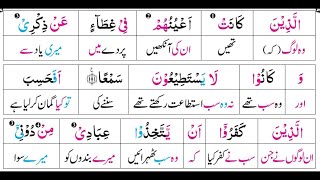 الَّذِيْنَ كَانَتْ اَعْيُنُهُمْ فِيْ غِطَآءٍ عَنْ ذِكْرِيْ
وہ لوگ (کہ) تھیں ان کی آنکھیں پردے میں میری یاد سے
وَ كَانُوْا لَا يَسْتَطِيْعُوْنَ سَمْعًا اَفَحَسِبَ
اور وہ سب تھے نہ وہ سب استطاعت رکھتے تھے سننے کی تو کیا گمان کر لیا ہے
الَّذِيْنَ كَفَرُوْۤا اَنْ يَّتَّخِذُوْا عِبَادِيْ مِنْ دُوْنِيْۤ
ان لوگوں نے جن سب نے کفر کیا کہ وہ سب ٹھہرائیں گے میرے بندوں کو میرے سوا